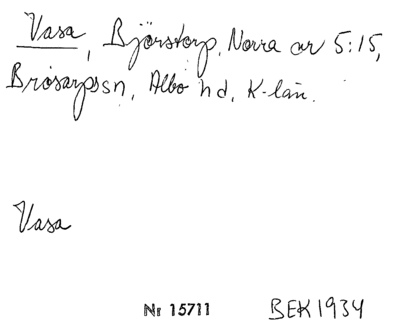 Vasa, Björstorp, Norra ar 5:15,
Brösarpssn, Albo hd, K-län.
Vasa
Nr 15711 BEK1934